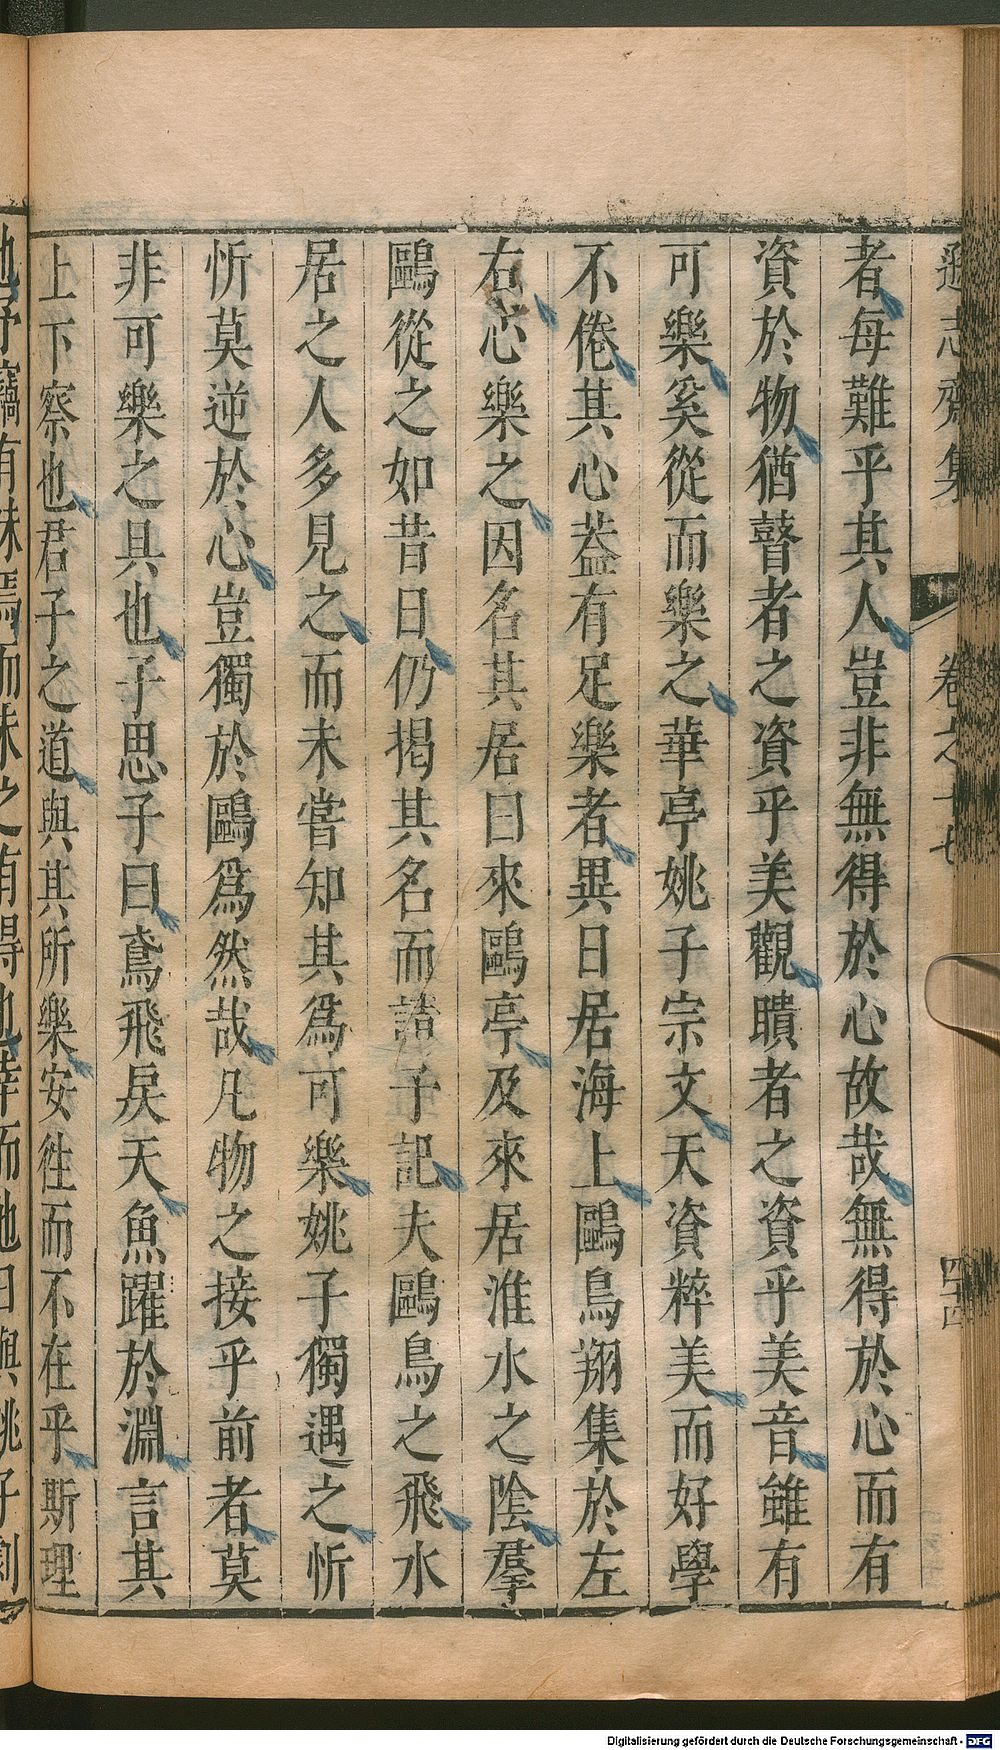 遜志齋集 卷之十七 四十四
者每難乎其人豈非無得於心故哉無得於心而有
資於物猶瞽者之資乎美觀聵者之資乎美音雖有
可樂奚從而樂之華亭姚子宗文天資粹美而好學
不倦其心葢有足樂者異日居海上鷗鳥翔集於左
右心樂之因名其居曰來鷗亭及來居淮水之陰羣
鷗從之如昔日仍揭其名而請予記夫鷗鳥之飛水
居之人多見之而未嘗知其爲可樂姚子獨遇之忻
忻莫逆於心豈獨於鷗爲然哉凡物之接乎前者莫
非可樂之具也子思子曰鳶飛戾天魚躍於淵言其
上下察也君子之道與其所樂安徃而不在乎斯理
也予竊有味焉而未之有得也幸而他日與姚子剖
Digitalisierung gefördert durch die Deutsche Forschungsgemeinschaft - DFG